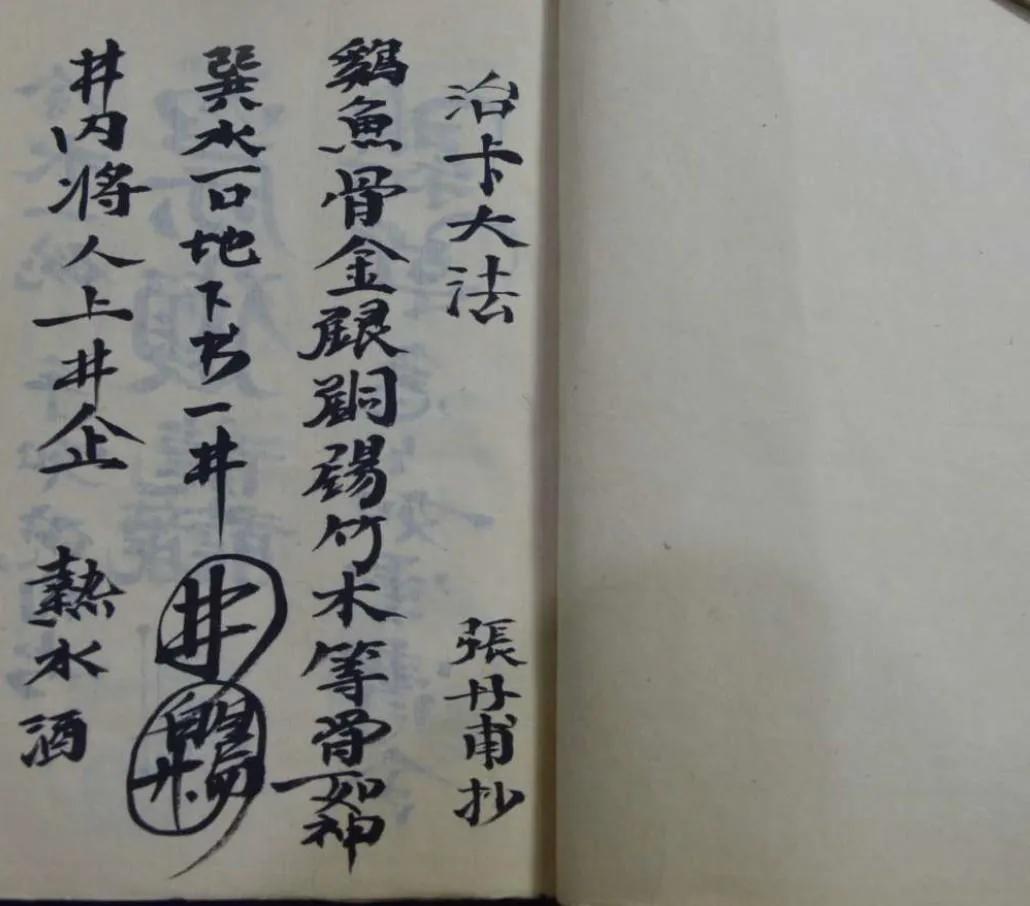 治卡大法
張丹甫抄
鷄魚骨金銀銅錫竹木等骨如神
巽水一口地下書一井
井
井内將人上井企
熱水酒